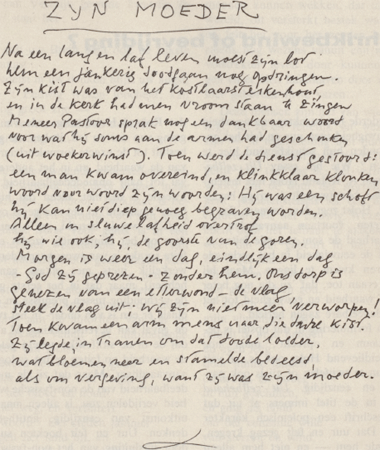 ZIJN MOEDER
Na een lang en laf leven moest zijn lot
hem een jankerig doodgaan nog opdringen.
Zijn kist was van het kostbaarste eikenhout
en in de kerk had men vroom staan te zingen
Meneer Pastoor sprak nog een dankbaar woord
voor wat hij soms aan de armen had geschonken
(uit woekerwinst). Toen werd de dienst gestoord:
een man kwam overeind, en klinkklaar klonken
woord voor woord zijn woorden: Hij was een schoft
hij kan niet diep genoeg begraven worden.
Alleen in sluwe lafheid overtrof
hij wie ook, hij, de goorste van de goren.
Morgen is weer een dag, eindelijk een dag
- God zij geprezen - zonder hem. Ons dorp is
genezen van een etterwond - de vlag,
steek de vlag uit: wij zijn niet meer verworpen!
Toen kwam een arm mens naar die dure kist.
Zij legde, in tranen om dat dode loeder,
wat bloemen neer en stamelde bedeesd,
als om vergeving, want zij was zijn moeder.